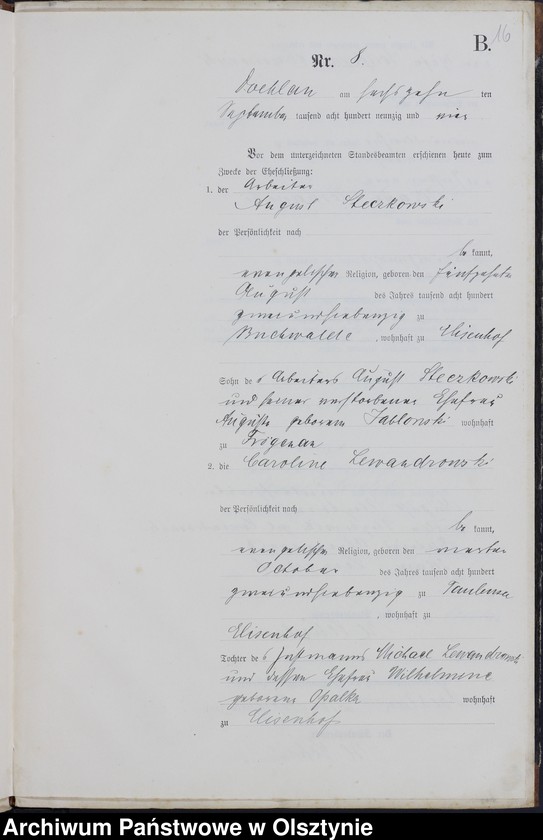 16
B.
Nr. 8.
Doehlau am sechszehn ten
September tausend acht hundert neunzig und vier
Vor dem unterzeichneten Standesbeamten erschienen heute zum
Zwecke der Eheschließung:
1. der Arbeiter
August Steczkowski
der Persönlichkeit nach
be kannt,
evangelischer Religion, geboren den fünfzehnten
August des Jahres tausend acht hundert
zweiundsiebenzig zu
Buchwalde, wohnhaft zu Elisenhof
Sohn des Arbeiters August Steczkowski
und seiner verstorbenen Ehefrau
Auguste geborene Jablonski wohnhaft
zu Frögenau
2. die Caroline Lewandrowski
der Persönlichkeit nach
be kannt,
evangelischer Religion, geboren den vierten
October des Jahres tausend acht hundert
zweiundsiebenzig zu
, wohnhaft zu
Elisenhof
Tochter des Instmanns Michael Lewandrowski
und dessen Ehefrau Wilhelmine
geborene Opalka wohnhaft
zu Elisenhof
Archiwum Państwowe w Olsztynie